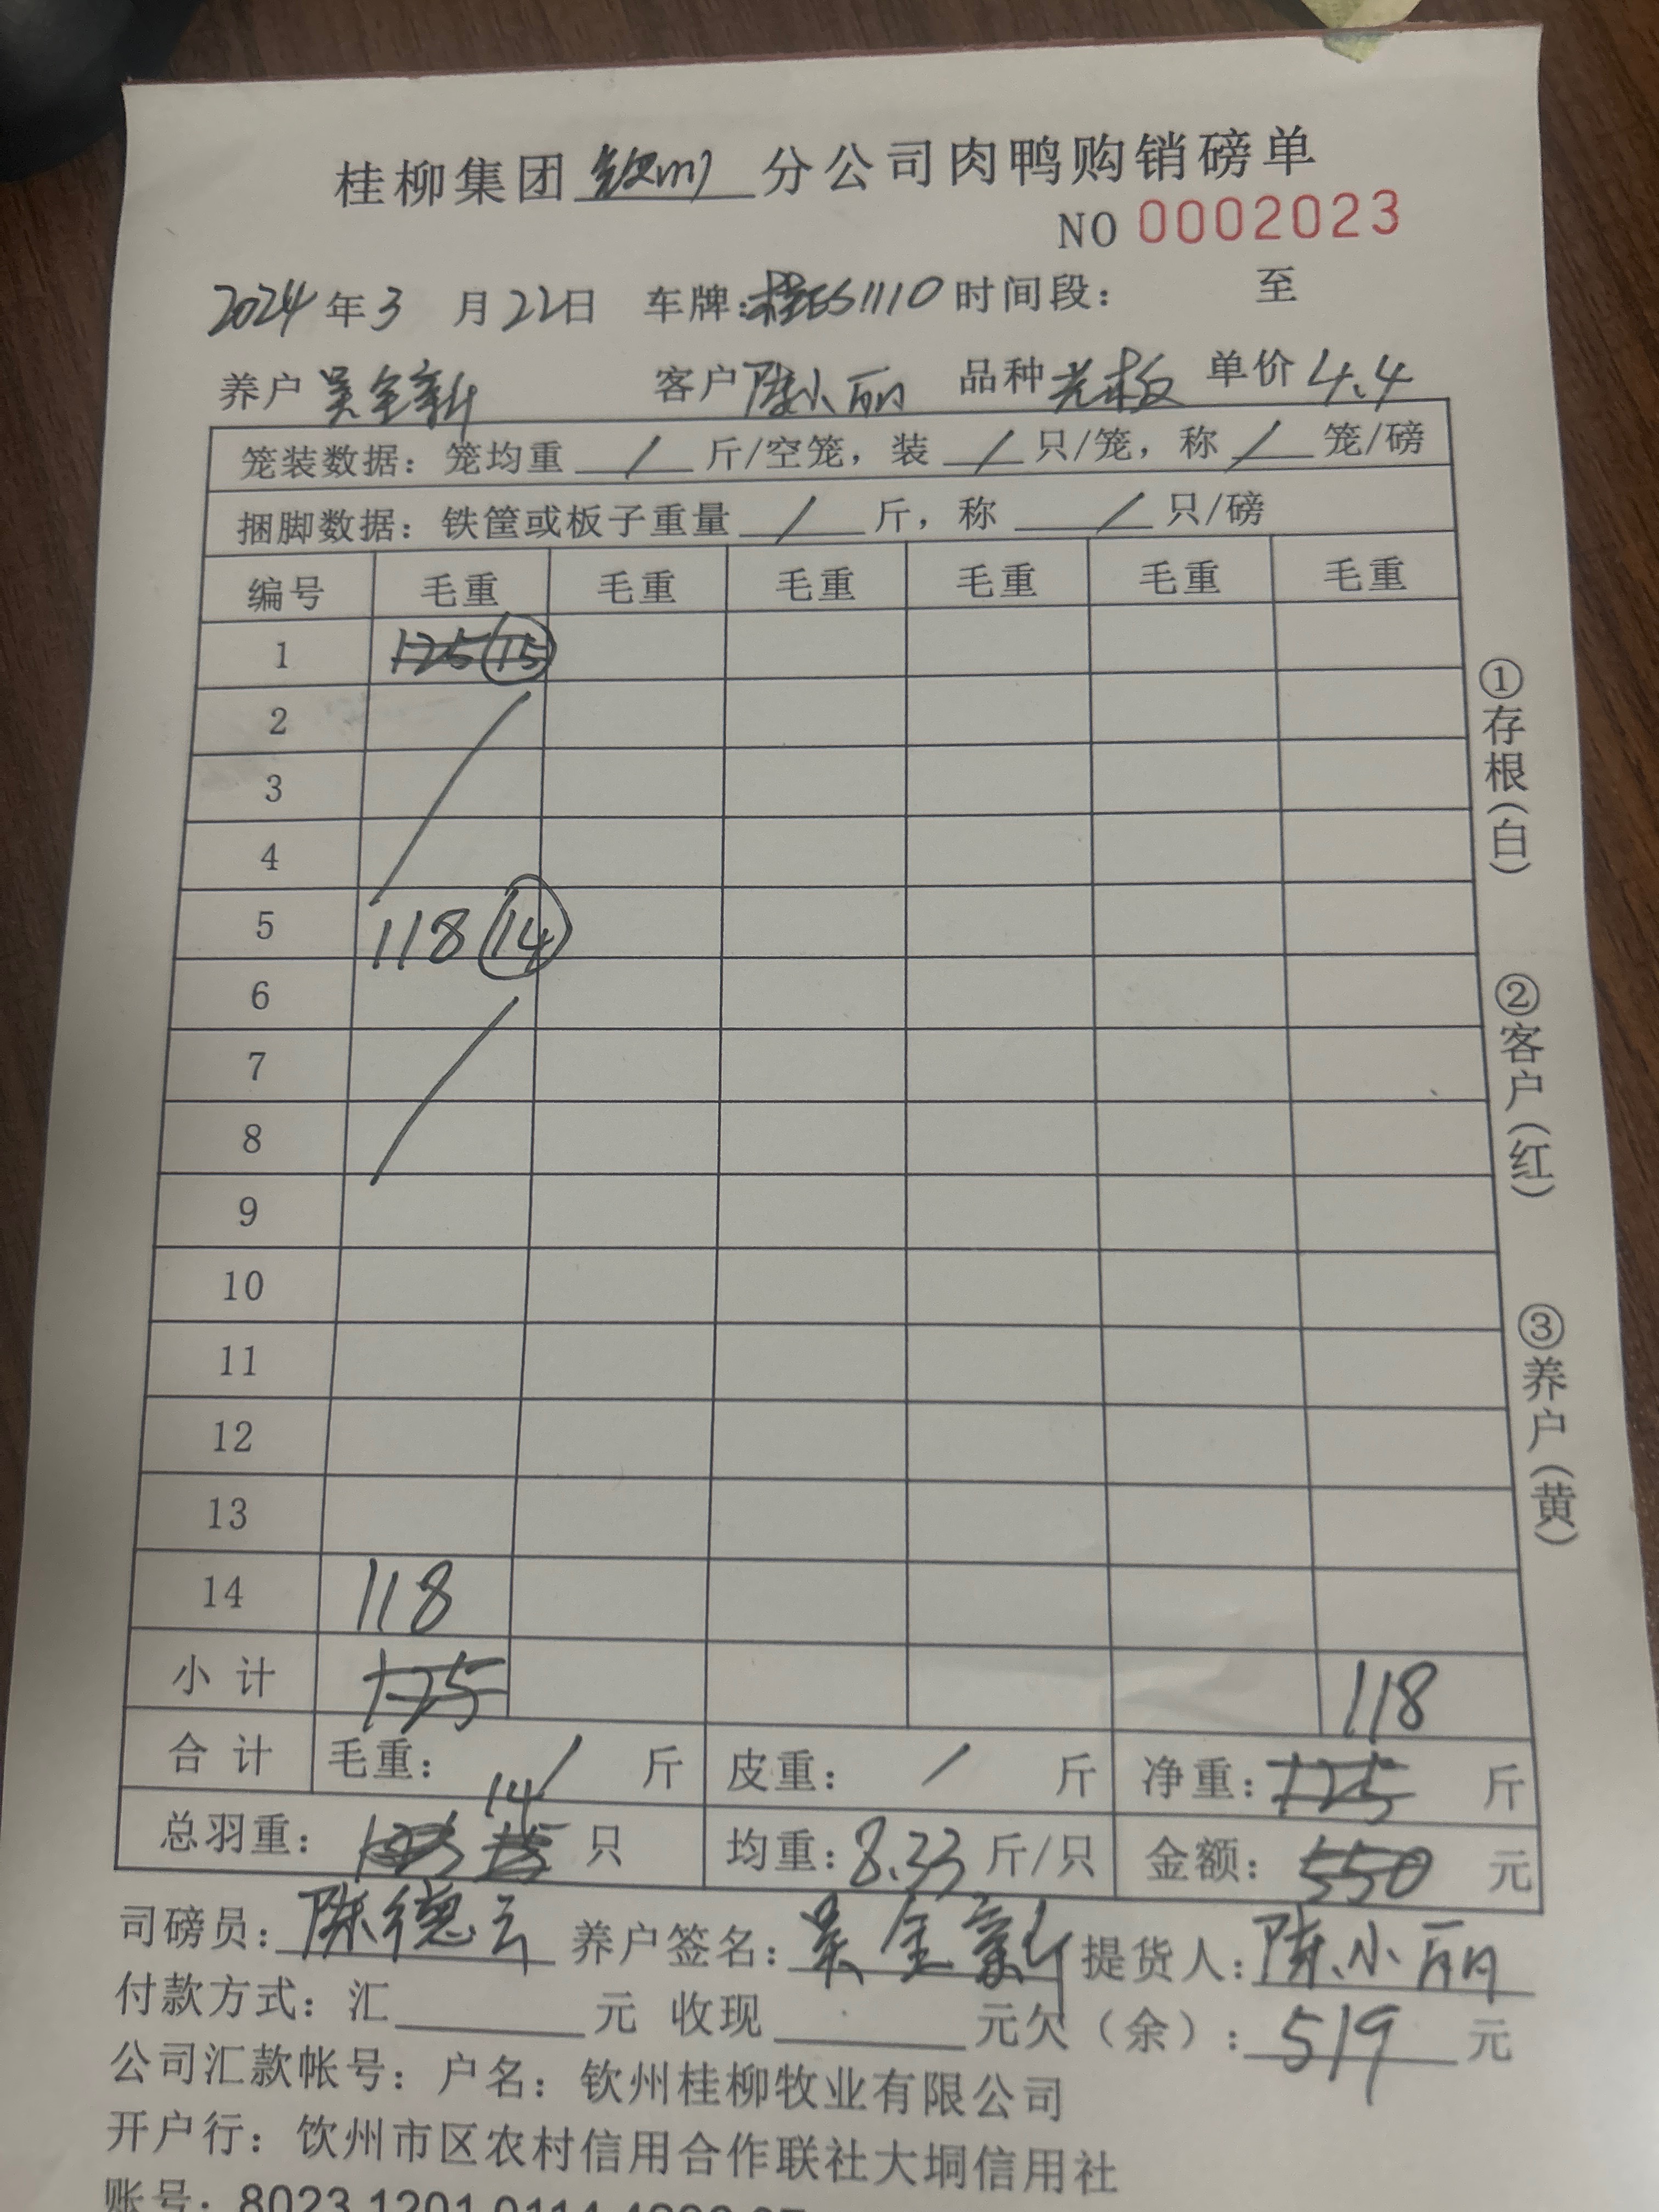 桂柳集团 钦州 分公司肉鸭购销磅单
NO 0002023
2024 年 3 月 22 日 车牌: 1110 时间段: 至
养户 吴金新 客户 陈小丽 品种 光板 单价 4.4
笼装数据: 笼均重 / 斤/空笼, 装 / 只/笼, 称 / 笼/磅
捆脚数据: 铁筐或板子重量 / 斤, 称 / 只/磅
编号 毛重 毛重 毛重 毛重 毛重 毛重
1 125 15
2
3
4
5 118 14
6
7
8
9
10
11
12
13
14 118
小计 125 118
合计 毛重: / 斤 皮重: / 斤 净重: 125 斤
14
总羽重: 15 只 均重: 8.33 斤/只 金额: 550 元
司磅员: 陈德云 养户签名: 吴金新 提货人: 陈小丽
付款方式: 汇 元 收现 元 欠(余): 519 元
公司汇款帐号: 户名: 钦州桂柳牧业有限公司
开户行: 钦州市区农村信用合作联社大垌信用社
账号: 8023 1201 0114
①存根(白)
②客户(红)
③养户(黄)